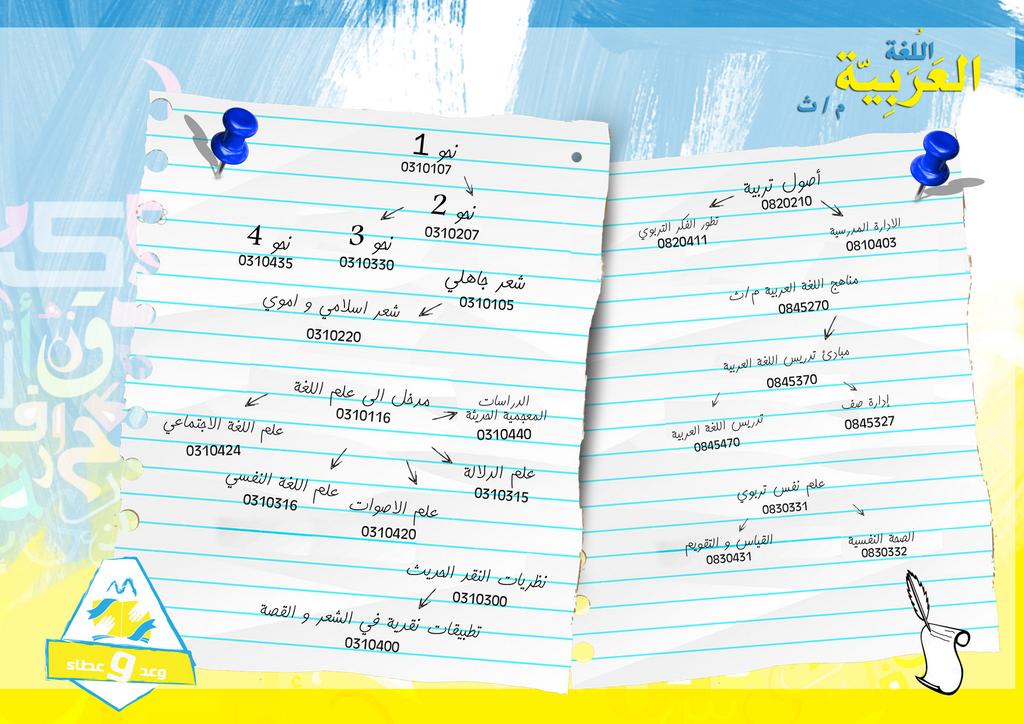 اللُغة
العَرَبِيّة
م/ث
نحو 1
0310107
نحو 2
0310207
نحو 3
0310330
نحو 4
0310435
شعر جاهلي
0310105
شعر اسلامي و اموي
0310220
مدخل الى علم اللغة
0310116
الدراسات
المعجمية الحديثة
0310440
علم اللغة الاجتماعي
0310424
علم الدلالة
0310315
علم اللغة النفسي
0310316
علم الاصوات
0310420
نظريات النقد الحديث
0310300
تطبيقات نقدية في الشعر و القصة
0310400
أصول تربية
0820210
تطور الفكر التربوي
0820411
الادارة المدرسية
0810403
مناهج اللغة العربية م/ث
0845270
مبادئ تدريس اللغة العربية
0845370
إدارة صف
0845327
تدريس اللغة العربية
0845470
علم نفس تربوي
0830331
القياس و التقويم
0830431
الصحة النفسية
0830332
وعد و عطاء